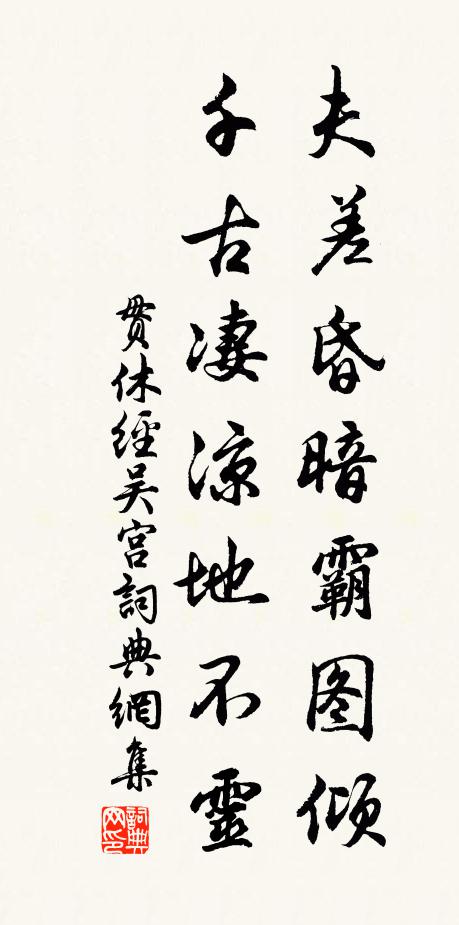 夫差昏暗霸图倾
千古凄凉地不靈
贯休經吴宫詞典網集
詞典网印